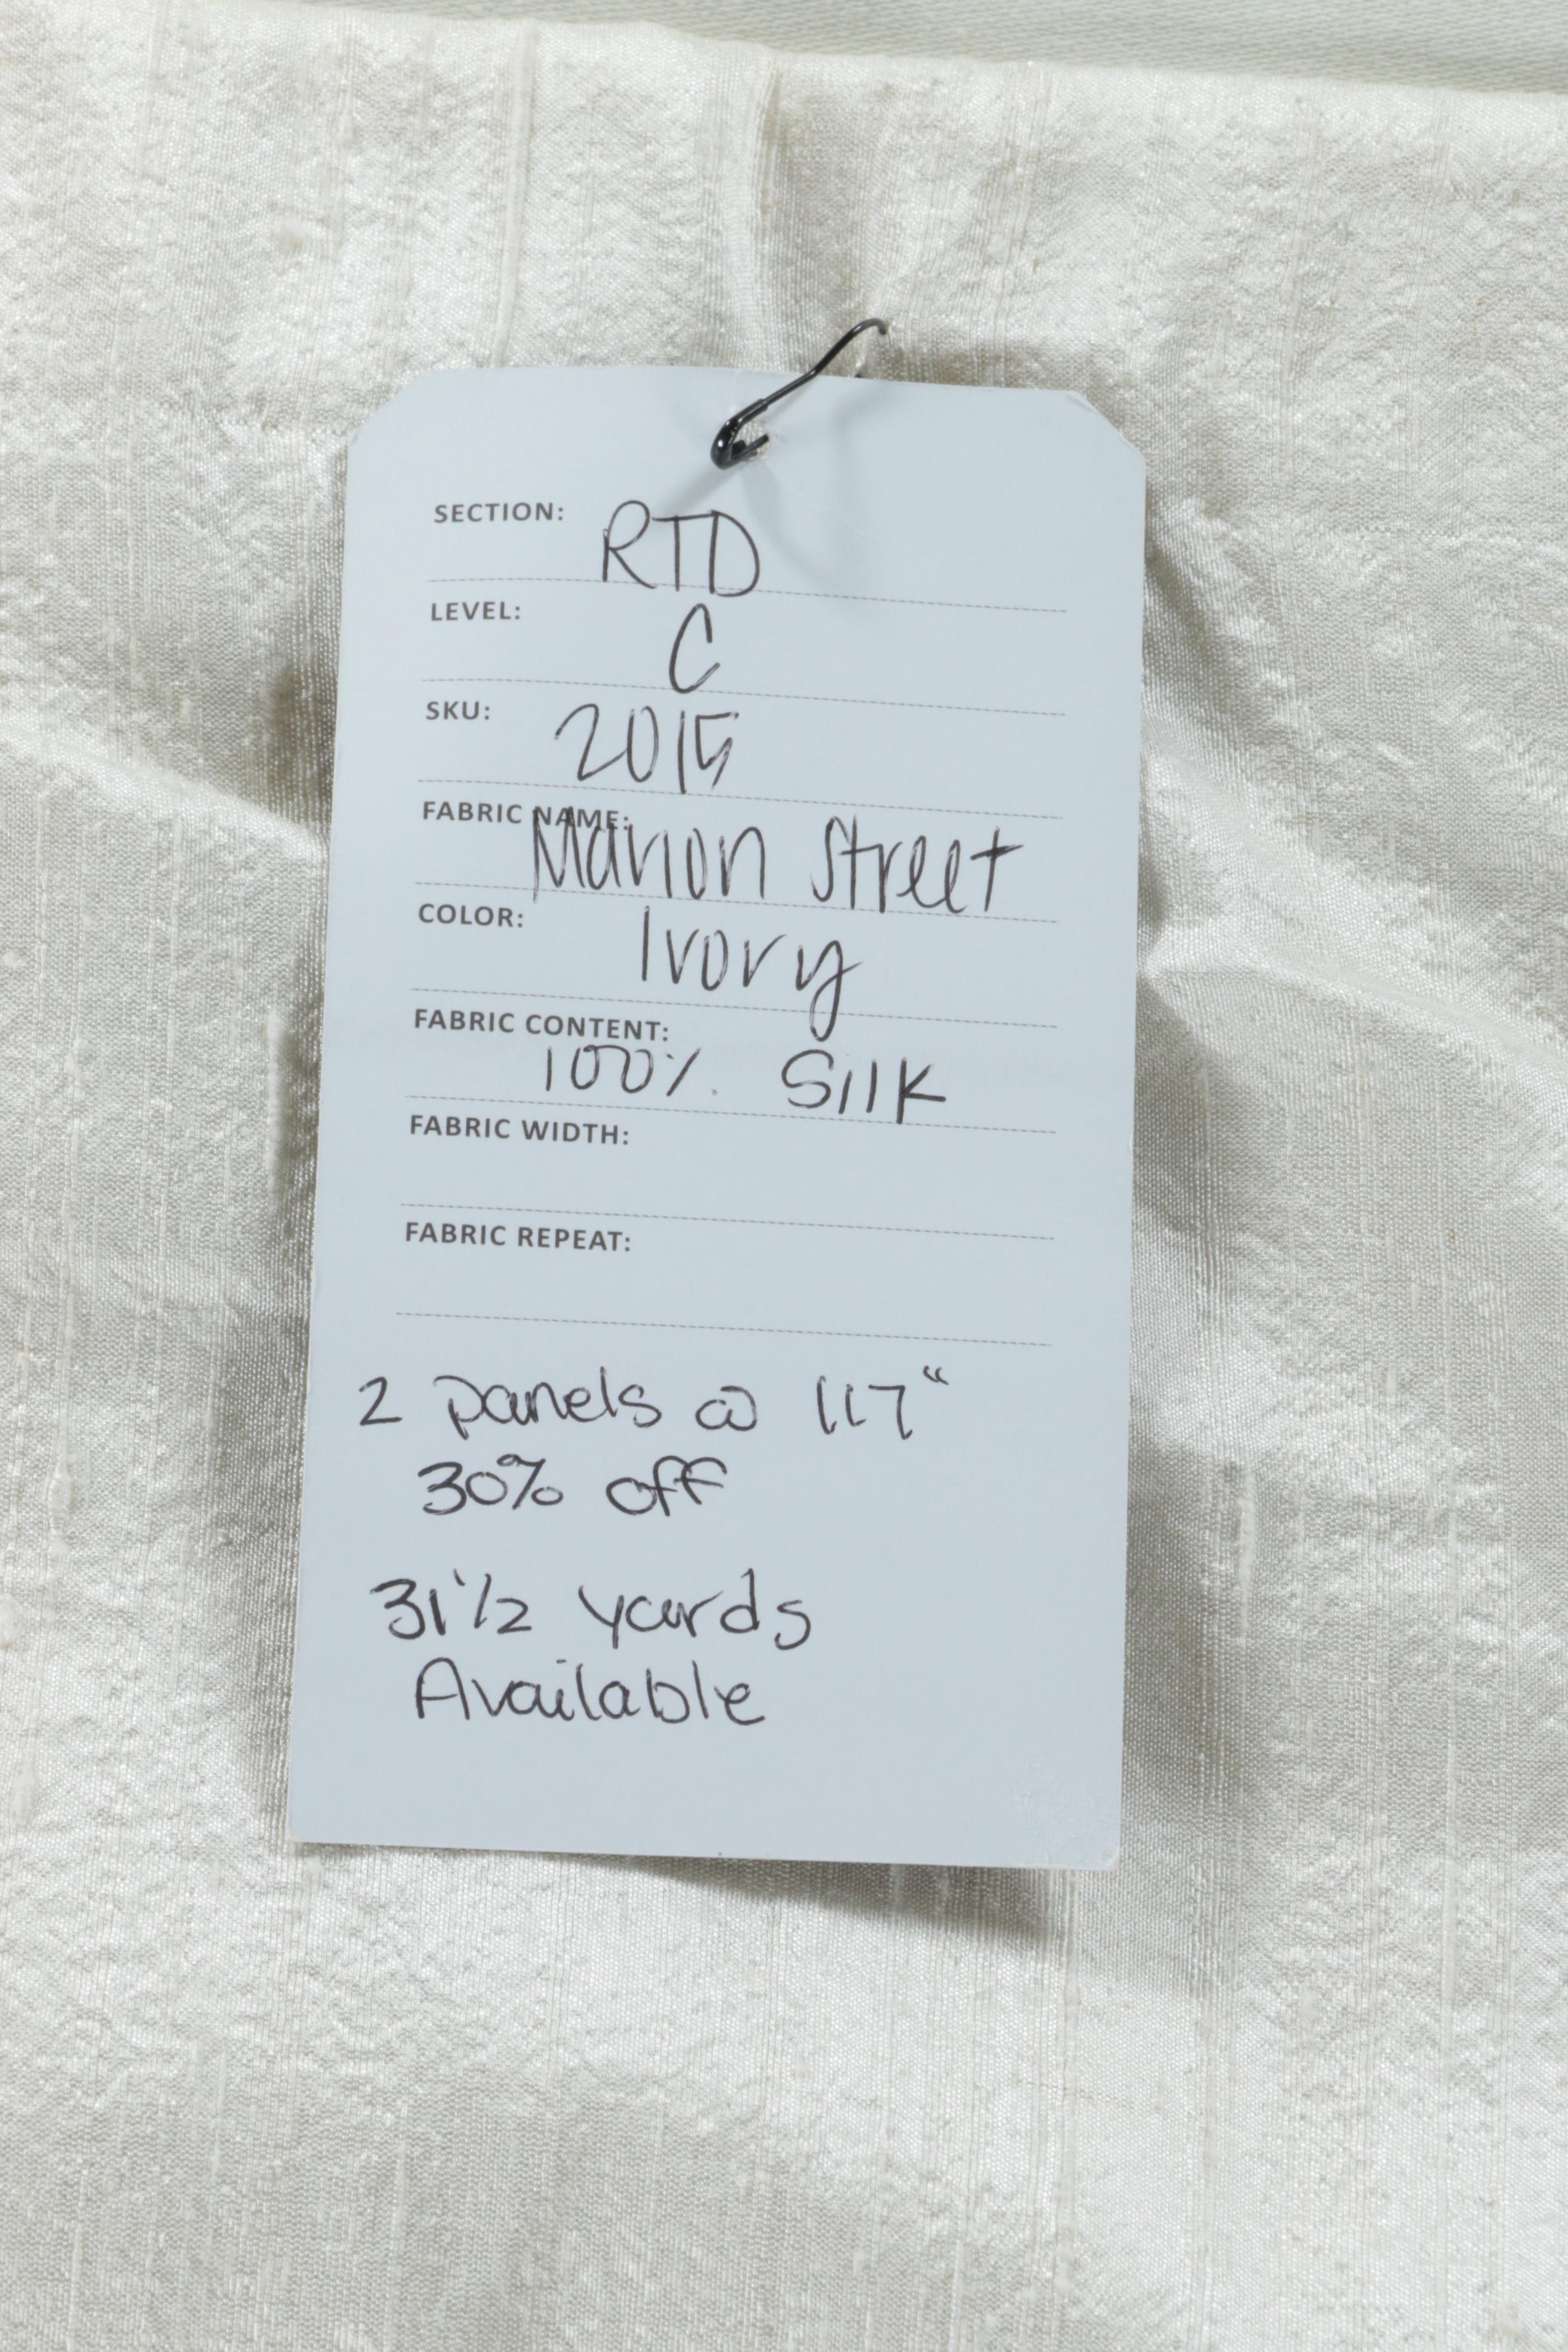 SECTION: RTD
LEVEL: C
SKU: 2015
FABRIC NAME: Marion Street
COLOR: Ivory
FABRIC CONTENT: 100% Silk
FABRIC WIDTH:
FABRIC REPEAT:
2 panels @ 117"
30% off
31 1/2 yards
Available